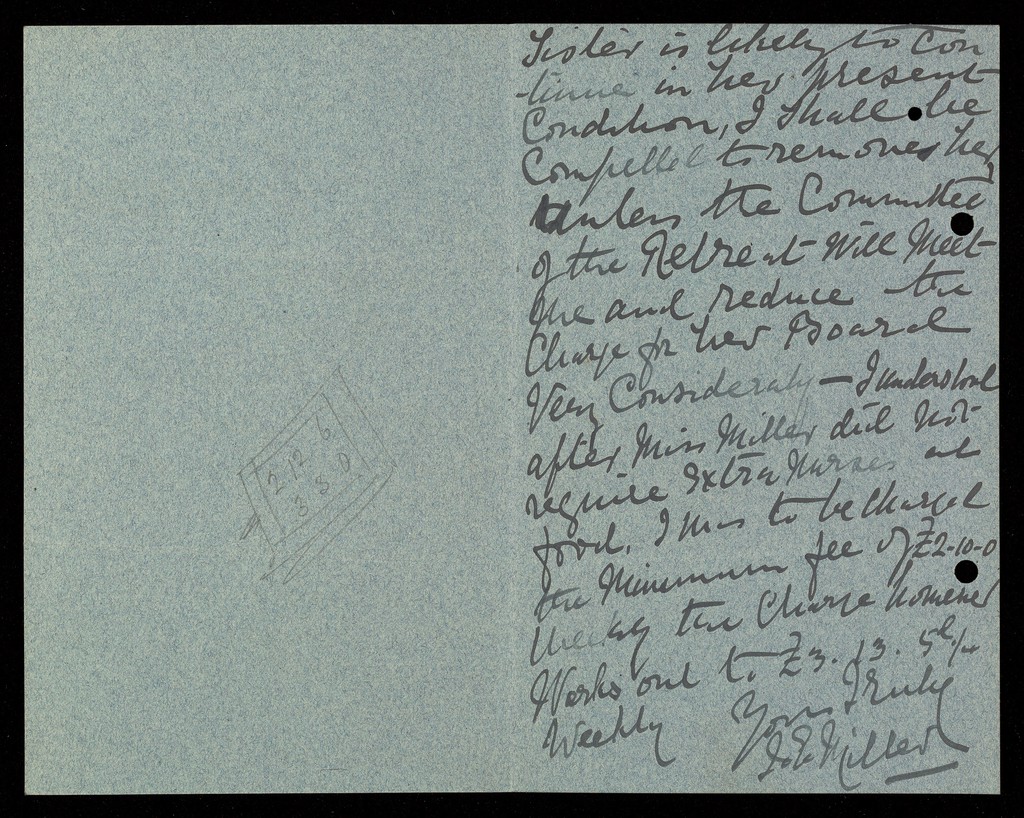 212 6
3 3 0
Sister is likely to con
-tinue in her present
Condition, I shall be
Compelled to remove her
Unless the Committee
of the Retreat Will Meet
Me and reduce the
Charge for her Board
Very Considerably — I understood
after Miss Miller did not
require extra Nurses at
food, I was to be Charged
the Minimum fee of £2-10-0
Weekly the Charge however
Works out to £3. 13. 5
Weekly Yours Truly
Miller